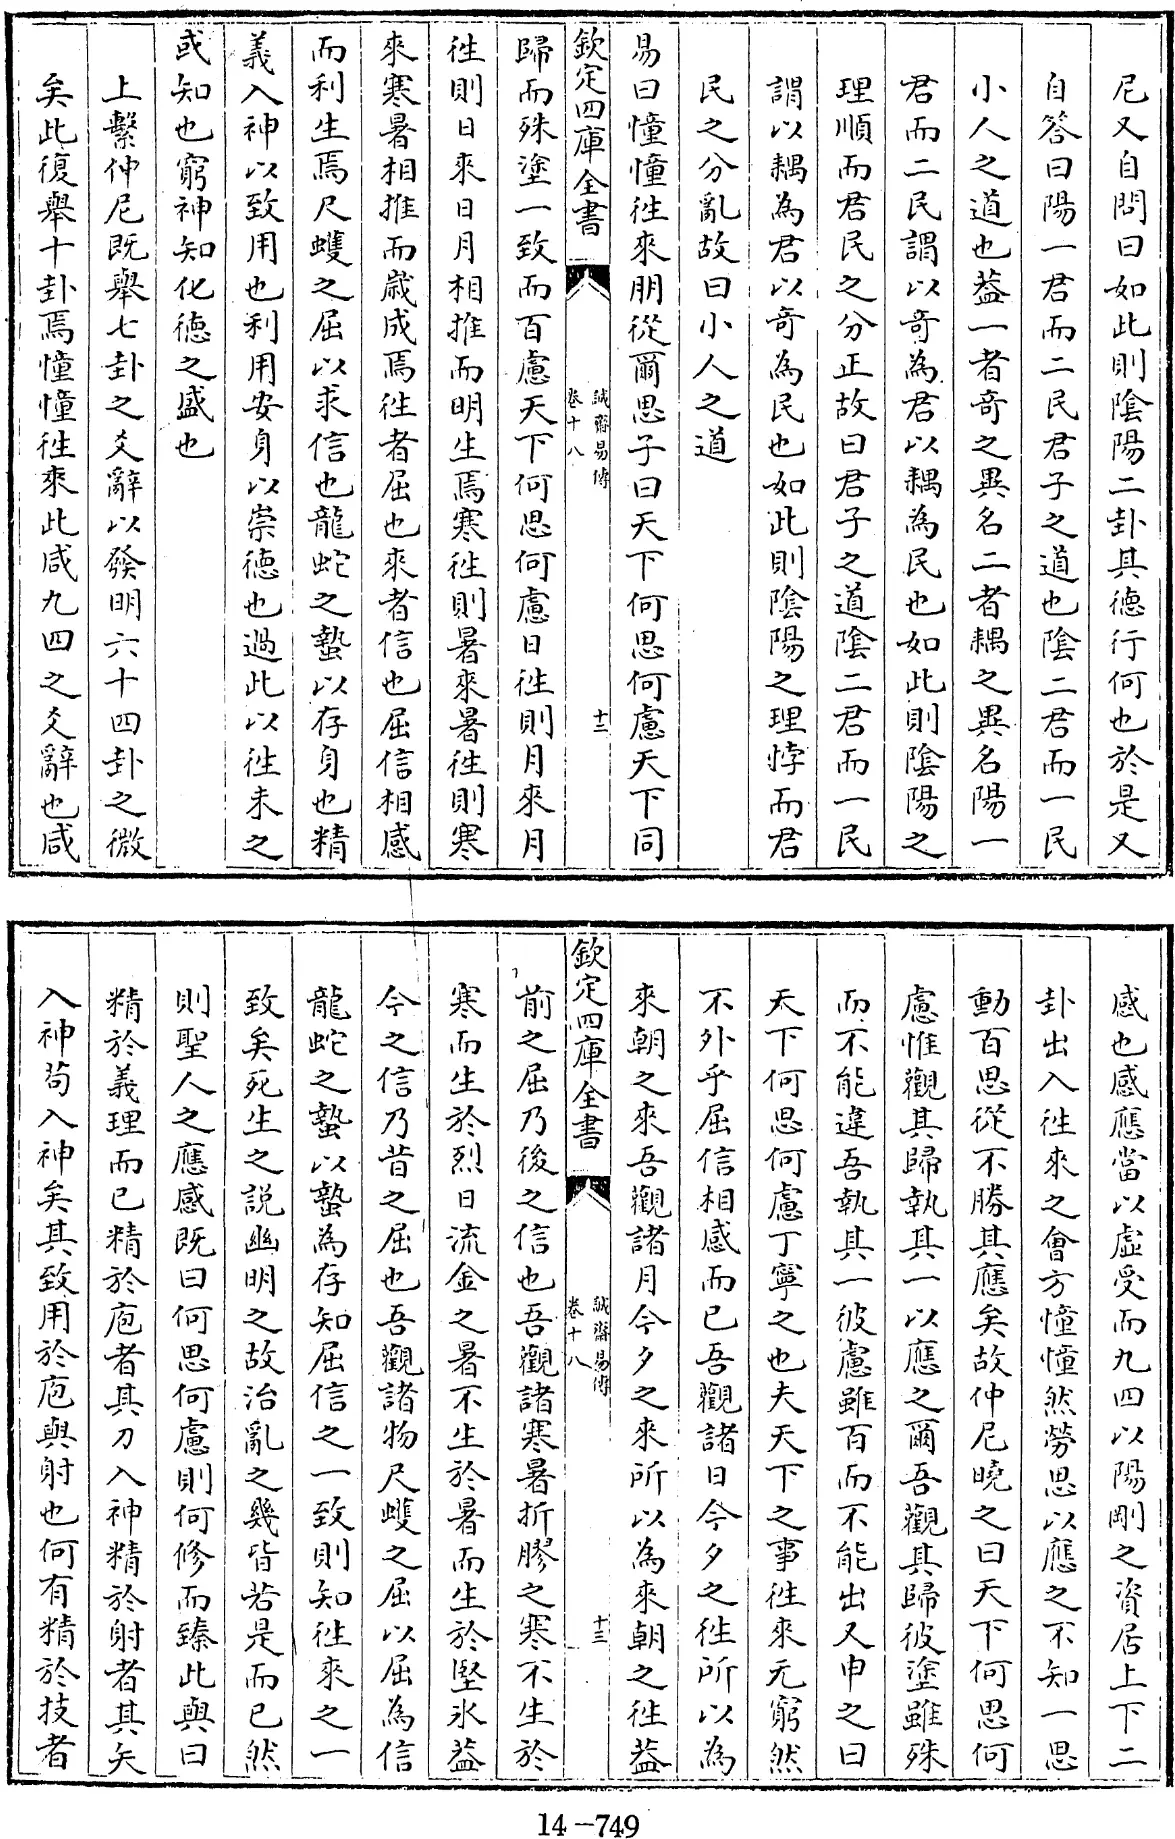 尼又自問曰如此則陰陽二卦其德行何也於是又
自答曰陽一君而二民君子之道也陰二君而一民
小人之道也葢一者奇之異名二者耦之異名陽一
君而二民謂以奇為君以耦為民也如此則陰陽之
理順而君民之分正故曰君子之道陰二君而一民
謂以耦為君以奇為民也如此則陰陽之理悖而君
民之分亂故曰小人之道
易曰憧憧徃來朋從爾思子曰天下何思何慮天下同
欽定四庫全書
誠齋易傳
卷十八
十二
歸而殊塗一致而百慮天下何思何慮日徃則月來月
徃則日來日月相推而明生焉寒徃則暑來暑徃則寒
來寒暑相推而歲成焉徃者屈也來者信也屈信相感
而利生焉尺蠖之屈以求信也龍蛇之蟄以存身也精
義入神以致用也利用安身以崇德也過此以徃未之
或知也窮神知化德之盛也
上繫仲尼既舉七卦之爻辭以發明六十四卦之微
矣此復舉十卦焉憧憧徃來此咸九四之爻辭也咸
感也感應當以虛受而九四以陽剛之資居上下二
卦出入徃來之會方憧憧然勞思以應之不知一思
動百思從不勝其應矣故仲尼曉之曰天下何思何
慮惟觀其歸執其一以應之爾吾觀其歸彼塗雖殊
而不能違吾執其一彼慮雖百而不能出又申之曰
天下何思何慮丁寧之也夫天下之事徃來无窮然
不外乎屈信相感而已吾觀諸日今夕之徃所以為
來朝之來吾觀諸月今夕之來所以為來朝之徃葢
欽定四庫全書
誠齋易傳
卷十八
十三
前之屈乃後之信也吾觀諸寒暑折膠之寒不生於
寒而生於烈日流金之暑不生於暑而生於堅氷葢
今之信乃昔之屈也吾觀諸物尺蠖之屈以屈為信
龍蛇之蟄以蟄為存知屈信之一致則知徃來之一
致矣死生之説幽明之故治亂之幾皆若是而已然
則聖人之應感既曰何思何慮則何修而臻此與曰
精於義理而已精於庖者其刀入神精於射者其矢
入神茍入神矣其致用於庖與射也何有精於技者
14-749